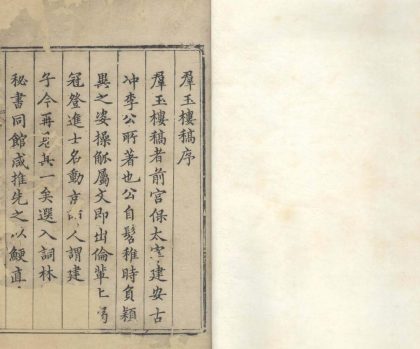 羣玉樓稿序
羣玉樓稿者前宮保太宰建安古
冲李公所著也公自髫稚時負穎
異之姿操觚屬文即出倫輩上
冠登進士名動京 人謂建
今再 其一矣選入詞林
秘書同館咸推先之以鯁直